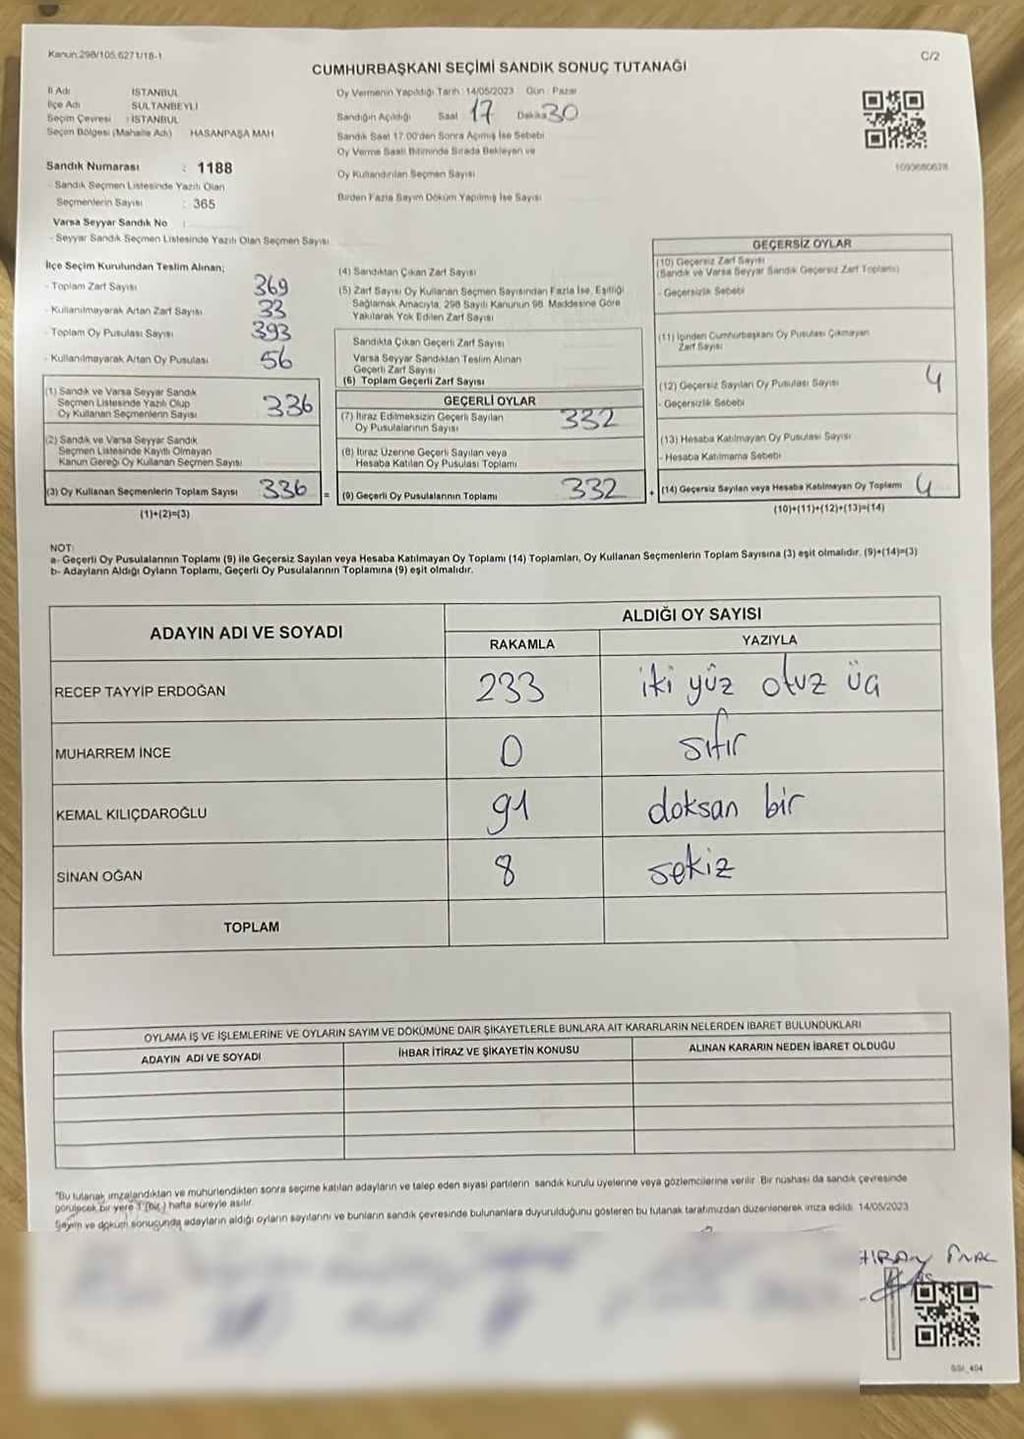 Kanun:298/105,6271/18-1
C/2
CUMHURBAŞKANI SEÇİMİ SANDIK SONUÇ TUTANAĞI
İl Adı : İSTANBUL
İlçe Adı : SULTANBEYLİ
Seçim Çevresi : İSTANBUL
Seçim Bölgesi (Mahalle Adı) HASANPAŞA MAH
Oy Vermenin Yapıldığı Tarih : 14/05/2023 Gün : Pazar
Sandığın Açıldığı Saat 17 Dakika 30
Sandık Saat 17.00'den Sonra Açılmış İse Sebebi
Oy Verme Saati Bitiminde Sırada Bekleyen ve
Oy Kullandırılan Seçmen Sayısı
Birden Fazla Sayım Döküm Yapılmış İse Sayısı
Sandık Numarası : 1188
- Sandık Seçmen Listesinde Yazılı Olan
Seçmenlerin Sayısı : 365
Varsa Seyyar Sandık No :
- Seyyar Sandık Seçmen Listesinde Yazılı Olan Seçmen Sayısı
İlçe Seçim Kurulundan Teslim Alınan;
- Toplam Zarf Sayısı 369
- Kullanılmayarak Artan Zarf Sayısı 33
- Toplam Oy Pusulası Sayısı 393
- Kullanılmayarak Artan Oy Pusulası 56
(1) Sandık ve Varsa Seyyar Sandık
Seçmen Listesinde Yazılı Olup
Oy Kullanan Seçmenlerin Sayısı 336
(2) Sandık ve Varsa Seyyar Sandık
Seçmen Listesinde Kayıtlı Olmayan
Kanun Gereği Oy Kullanan Seçmen Sayısı
(3) Oy Kullanan Seçmenlerin Toplam Sayısı 336 =
(1)+(2)=(3)
(4) Sandıktan Çıkan Zarf Sayısı
(5) Zarf Sayısı Oy Kullanan Seçmen Sayısından Fazla İse, Eşitliği
Sağlamak Amacıyla, 298 Sayılı Kanunun 98. Maddesine Göre
Yakılarak Yok Edilen Zarf Sayısı
Sandıkta Çıkan Geçerli Zarf Sayısı
Varsa Seyyar Sandıktan Teslim Alınan
Geçerli Zarf Sayısı
(6) Toplam Geçerli Zarf Sayısı
GEÇERLİ OYLAR
(7) İtiraz Edilmeksizin Geçerli Sayılan
Oy Pusulalarının Sayısı 332
(8) İtiraz Üzerine Geçerli Sayılan veya
Hesaba Katılan Oy Pusulası Toplamı
(9) Geçerli Oy Pusulalarının Toplamı 332 +
GEÇERSİZ OYLAR
(10) Geçersiz Zarf Sayısı
(Sandık ve Varsa Seyyar Sandık Geçersiz Zarf Toplamı)
- Geçersizlik Sebebi
(11) İçinden Cumhurbaşkanı Oy Pusulası Çıkmayan
Zarf Sayısı
(12) Geçersiz Sayılan Oy Pusulası Sayısı 4
- Geçersizlik Sebebi
(13) Hesaba Katılmayan Oy Pusulası Sayısı
- Hesaba Katılmama Sebebi
(14) Geçersiz Sayılan veya Hesaba Katılmayan Oy Toplamı 4
(10)+(11)+(12)+(13)=(14)
NOT:
a- Geçerli Oy Pusulalarının Toplamı (9) ile Geçersiz Sayılan veya Hesaba Katılmayan Oy Toplamı (14) Toplamları, Oy Kullanan Seçmenlerin Toplam Sayısına (3) eşit olmalıdır. (9)+(14)=(3)
b- Adayların Aldığı Oyların Toplamı, Geçerli Oy Pusulalarının Toplamına (9) eşit olmalıdır.
ADAYIN ADI VE SOYADI
ALDIĞI OY SAYISI
RAKAMLA YAZIYLA
RECEP TAYYİP ERDOĞAN 233 iki yüz otuz üç
MUHARREM İNCE 0 sıfır
KEMAL KILIÇDAROĞLU 91 doksan bir
SİNAN OĞAN 8 sekiz
TOPLAM
OYLAMA İŞ VE İŞLEMLERİNE VE OYLARIN SAYIM VE DÖKÜMÜNE DAİR ŞİKAYETLERLE BUNLARA AİT KARARLARIN NELERDEN İBARET BULUNDUKLARI
ADAYIN ADI VE SOYADI İHBAR İTİRAZ VE ŞİKAYETİN KONUSU ALINAN KARARIN NEDEN İBARET OLDUĞU
"Bu tutanak imzalandıktan ve mühürlendikten sonra seçime katılan adayların ve talep eden siyasi partilerin sandık kurulu üyelerine veya gözlemcilerine verilir. Bir nüshası da sandık çevresinde
görülecek bir yere 1 (bir) hafta süreyle asılır.
Sayım ve döküm sonucunda adayların aldığı oyların sayılarını ve bunların sandık çevresinde bulunanlara duyurulduğunu gösteren bu tutanak tarafımızdan düzenlenerek imza edildi. 14/05/2023